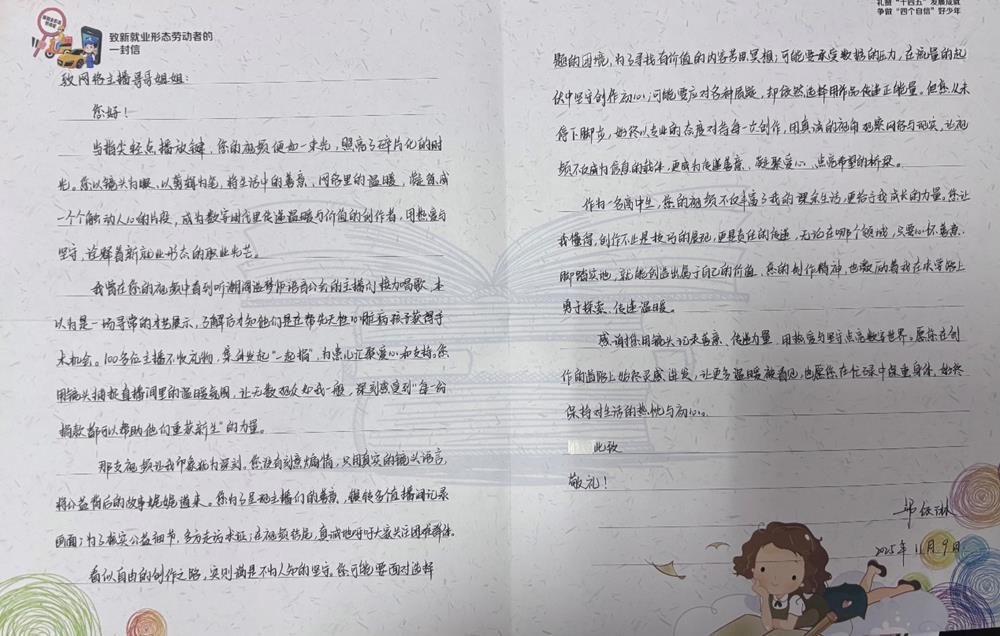 致新就业形态劳动者的
一封信
致网络主播哥哥姐姐：
您好！
当指尖轻点播放键，您的视频便如一束光，照亮了碎片化的时
光。您以镜头为眼、以剪辑为笔，将生活中的善意、网络里的温暖，凝练成
一个个触动人心的片段，成为数字时代里传递温暖与价值的创作者，用热爱与
坚守，诠释着新就业形态的职业光芒。
我曾在您的视频中看到听潮阁逐梦师语音公会的主播们接力唱歌，本
以为是一场寻常的才艺展示，了解后才知他们是在帮先天性心脏病孩子获得手
术机会。100多位主播不收礼物，案件发起“一起捐”，为患儿汇聚爱心和支持。您
用镜头捕捉直播间里的温暖氛围，让无数观众如我一般，深刻感受到“每一份
捐款都可以帮助他们重获新生”的力量。
那支视频让我印象尤为深刻。您没有刻意煽情，只用真实的镜头语言，
将公益背后的故事娓娓道来。您为了呈现主播们的善意，辗转多个直播间记录
画面；为了核实公益细节，多方走访求证；在视频结尾，真诚地呼吁大家关注困难群体。
看似自由的创作之路，实则满是不为人知的坚守。您可能要面对选择
礼赞“十四五”发展成就
争做“四个自信”好少年
题的困境，为了寻找有价值的内容苦思冥想；可能要承受数据的压力，在流量的起
伏中坚守创作初心；可能要应对各种质疑，却依然选择用作品传递正能量。但您从未
停下脚步，始终以专业的态度对待每一次创作，用真诚的视角观察网络与现实，让视
频不仅成为信息的载体，更成为传递善意、凝聚爱心、点亮希望的桥梁。
作为一名高中生，您的视频不仅丰富了我的课余生活，更给予我成长的力量。您让
我懂得，创作不止是技巧的展现，更是责任的传递，无论在哪个领域，只要心怀善意、
脚踏实地，就能创造出属于自己的价值。您的创作精神，也激励着我在求学路上
勇于探索、传递温暖。
感谢您用镜头记录善意、传递力量，用热爱与坚守点亮数字世界。愿您在创
作的道路上始终灵感迸发，让更多温暖被看见，也愿您在忙碌中保重身体，始终
保持对生活的热忱与初心。
此致
敬礼！
2025年11月9日